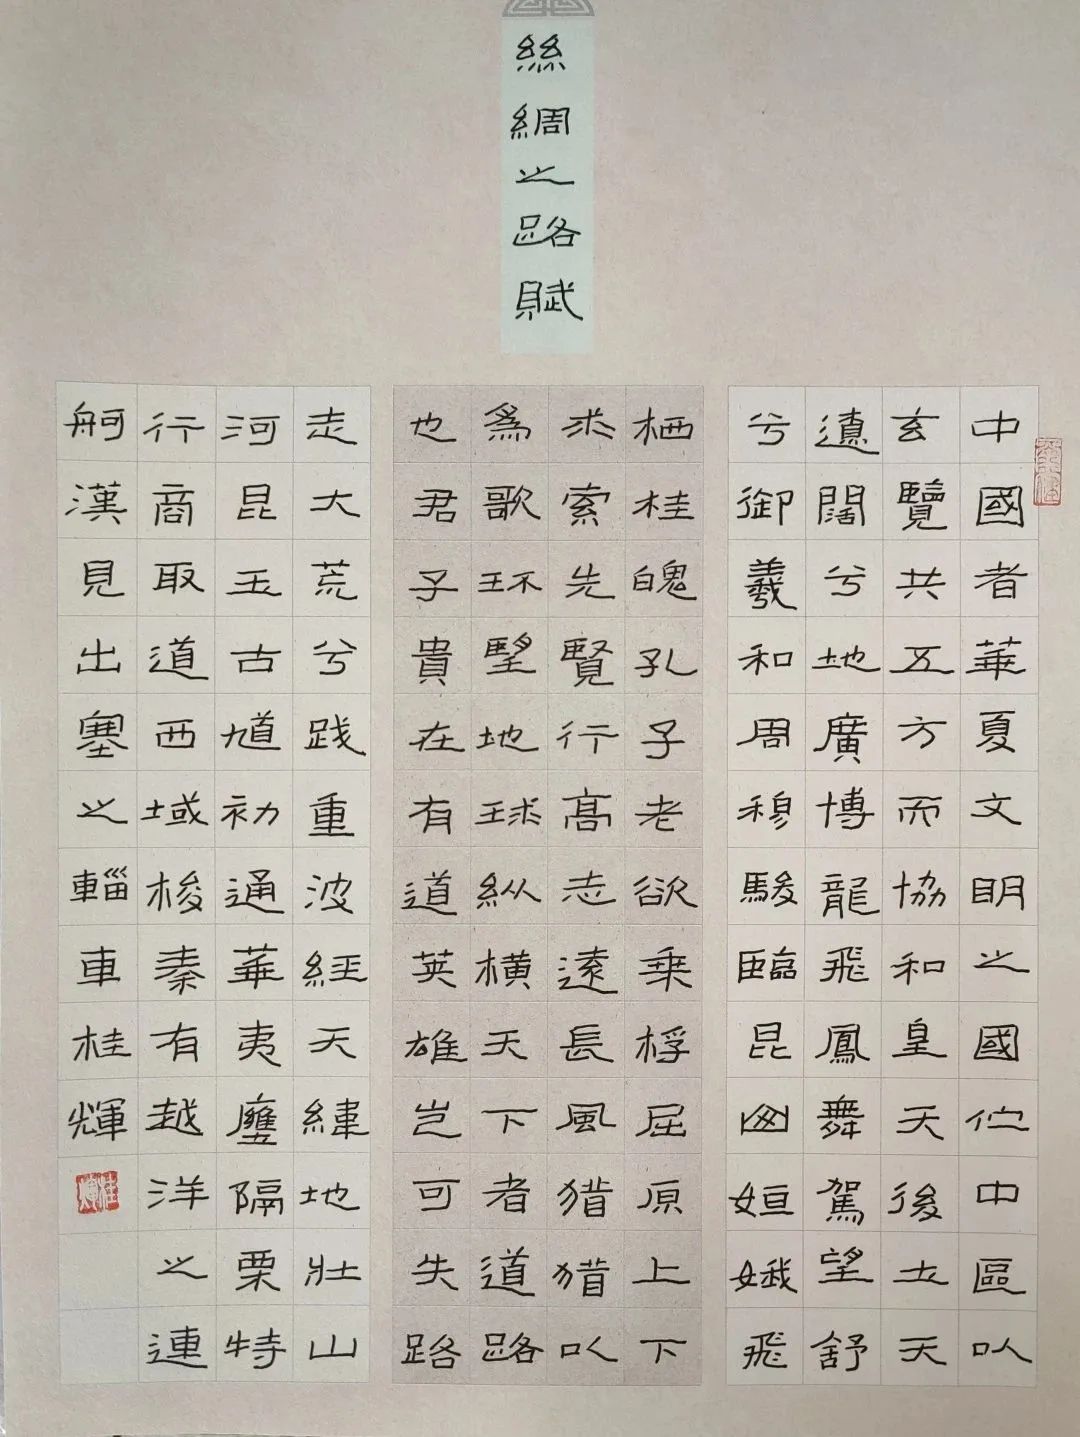 絲綢之路賦
中國者華夏文明之國伫中區以
玄覽共五方而協和皇天後土天
遠闊兮地廣博龍飛鳳舞駕望舒
兮御羲和周穆駿臨昆囪姮娥飛
栖桂魄孔子老欲乗桴屈原上下
求索先賢行高志遠長風猎猎以
為歌环堅地球縱橫天下者道路
也君子貴在有道英雄岂可失路
走大荒兮践重波經天緯地壯山
河昆玉古道初通華夷壅隔栗特
行商取道西域梭秦有越洋之連
舸漢見出塞之輜車桂輝